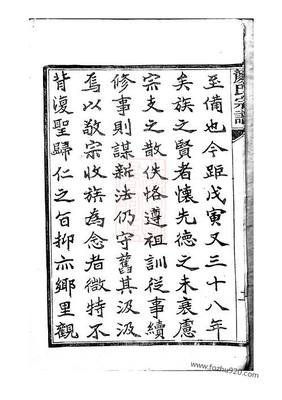 至備也今距戊寅又三十八年
矣族之賢者懷先德之未衰慮
宗支之散佚恪遵祖訓從事續
修事則謀新法仍守舊其汲汲
焉以敬宗收族為念者微特不
背復聖歸仁之旨抑亦鄉里觀
顏氏宗譜
www.fozhu920.com